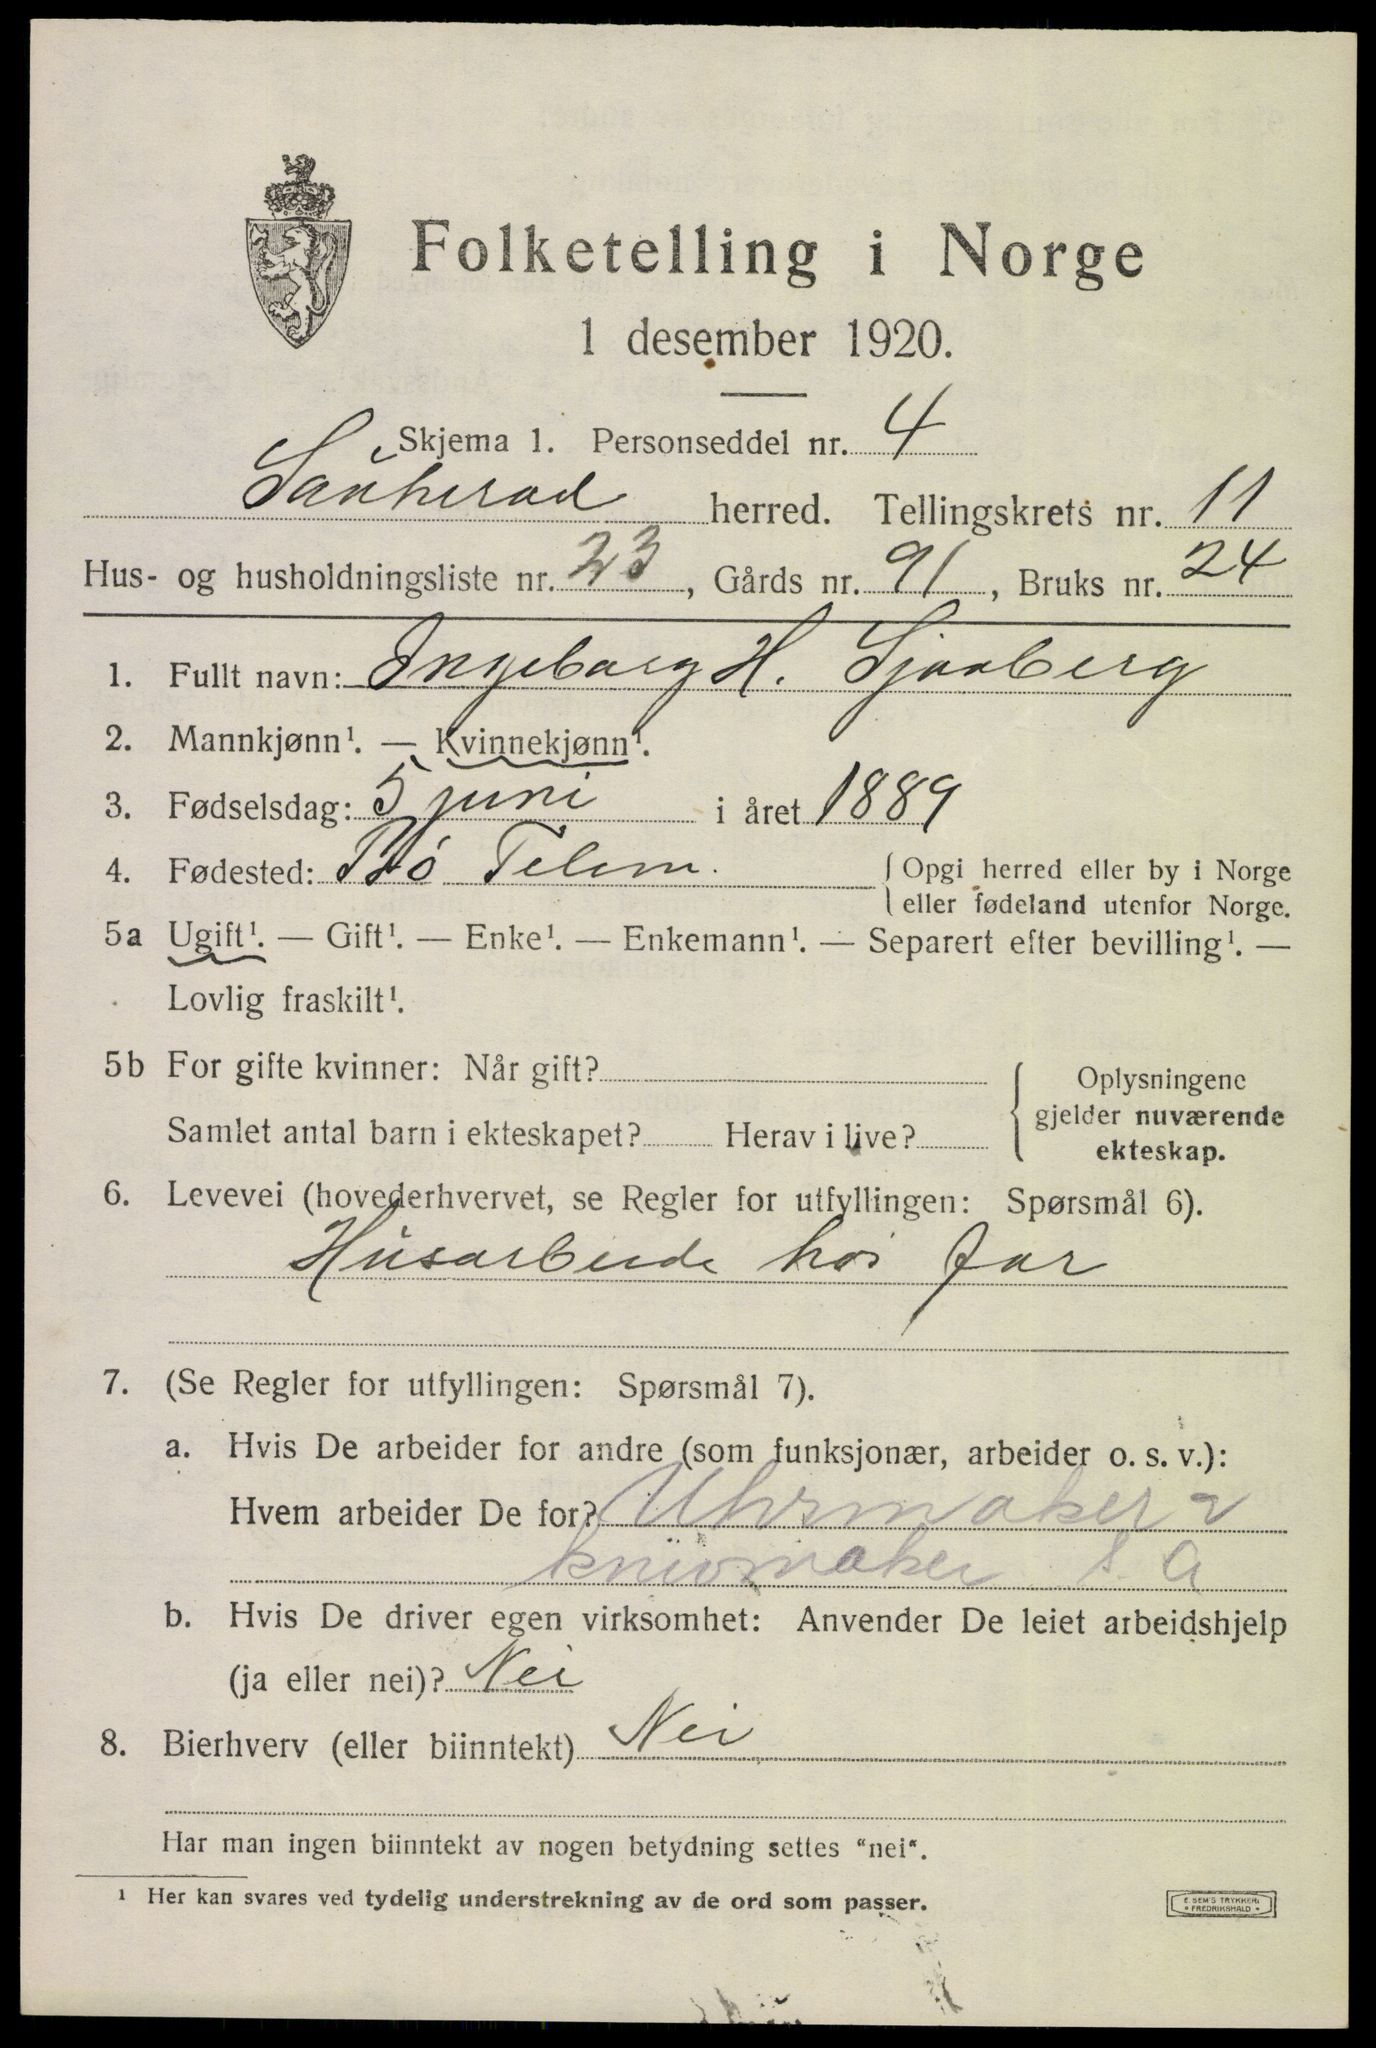 Folketelling i Norge
1 desember 1920.
Skjema 1. Personseddel nr. 4
Sauherad herred. Tellingskrets nr. 11
Hus- og husholdningsliste nr. 23, Gårds nr. 91, Bruks nr. 24
1. Fullt navn: Ingeborg H. Sjaaberg
2. Mannkjønn¹. — Kvinnekjønn¹.
3. Fødselsdag: 5 juni i året 1889
4. Fødested: Bø Telem. { Opgi herred eller by i Norge
eller fødeland utenfor Norge.
5a Ugift¹. — Gift¹. — Enke¹. — Enkemann¹. — Separert efter bevilling¹. —
Lovlig fraskilt¹.
5b For gifte kvinner: Når gift? { Oplysningene
gjelder nuværende
Samlet antal barn i ekteskapet? Herav i live?
ekteskap.
6. Levevei (hovederhvervet, se Regler for utfyllingen: Spørsmål 6).
Husarbeide hos far
7. (Se Regler for utfyllingen: Spørsmål 7).
a. Hvis De arbeider for andre (som funksjonær, arbeider o. s. v.):
Hvem arbeider De for? Uhrmaker
knivmaker s. a
b. Hvis De driver egen virksomhet: Anvender De leiet arbeidshjelp
(ja eller nei)? Nei
8. Bierhverv (eller biinntekt) Nei
Har man ingen biinntekt av nogen betydning settes "nei".
¹ Her kan svares ved tydelig understrekning av de ord som passer.
E. SEM'S TRYKKERI
FREDRIKSHALD